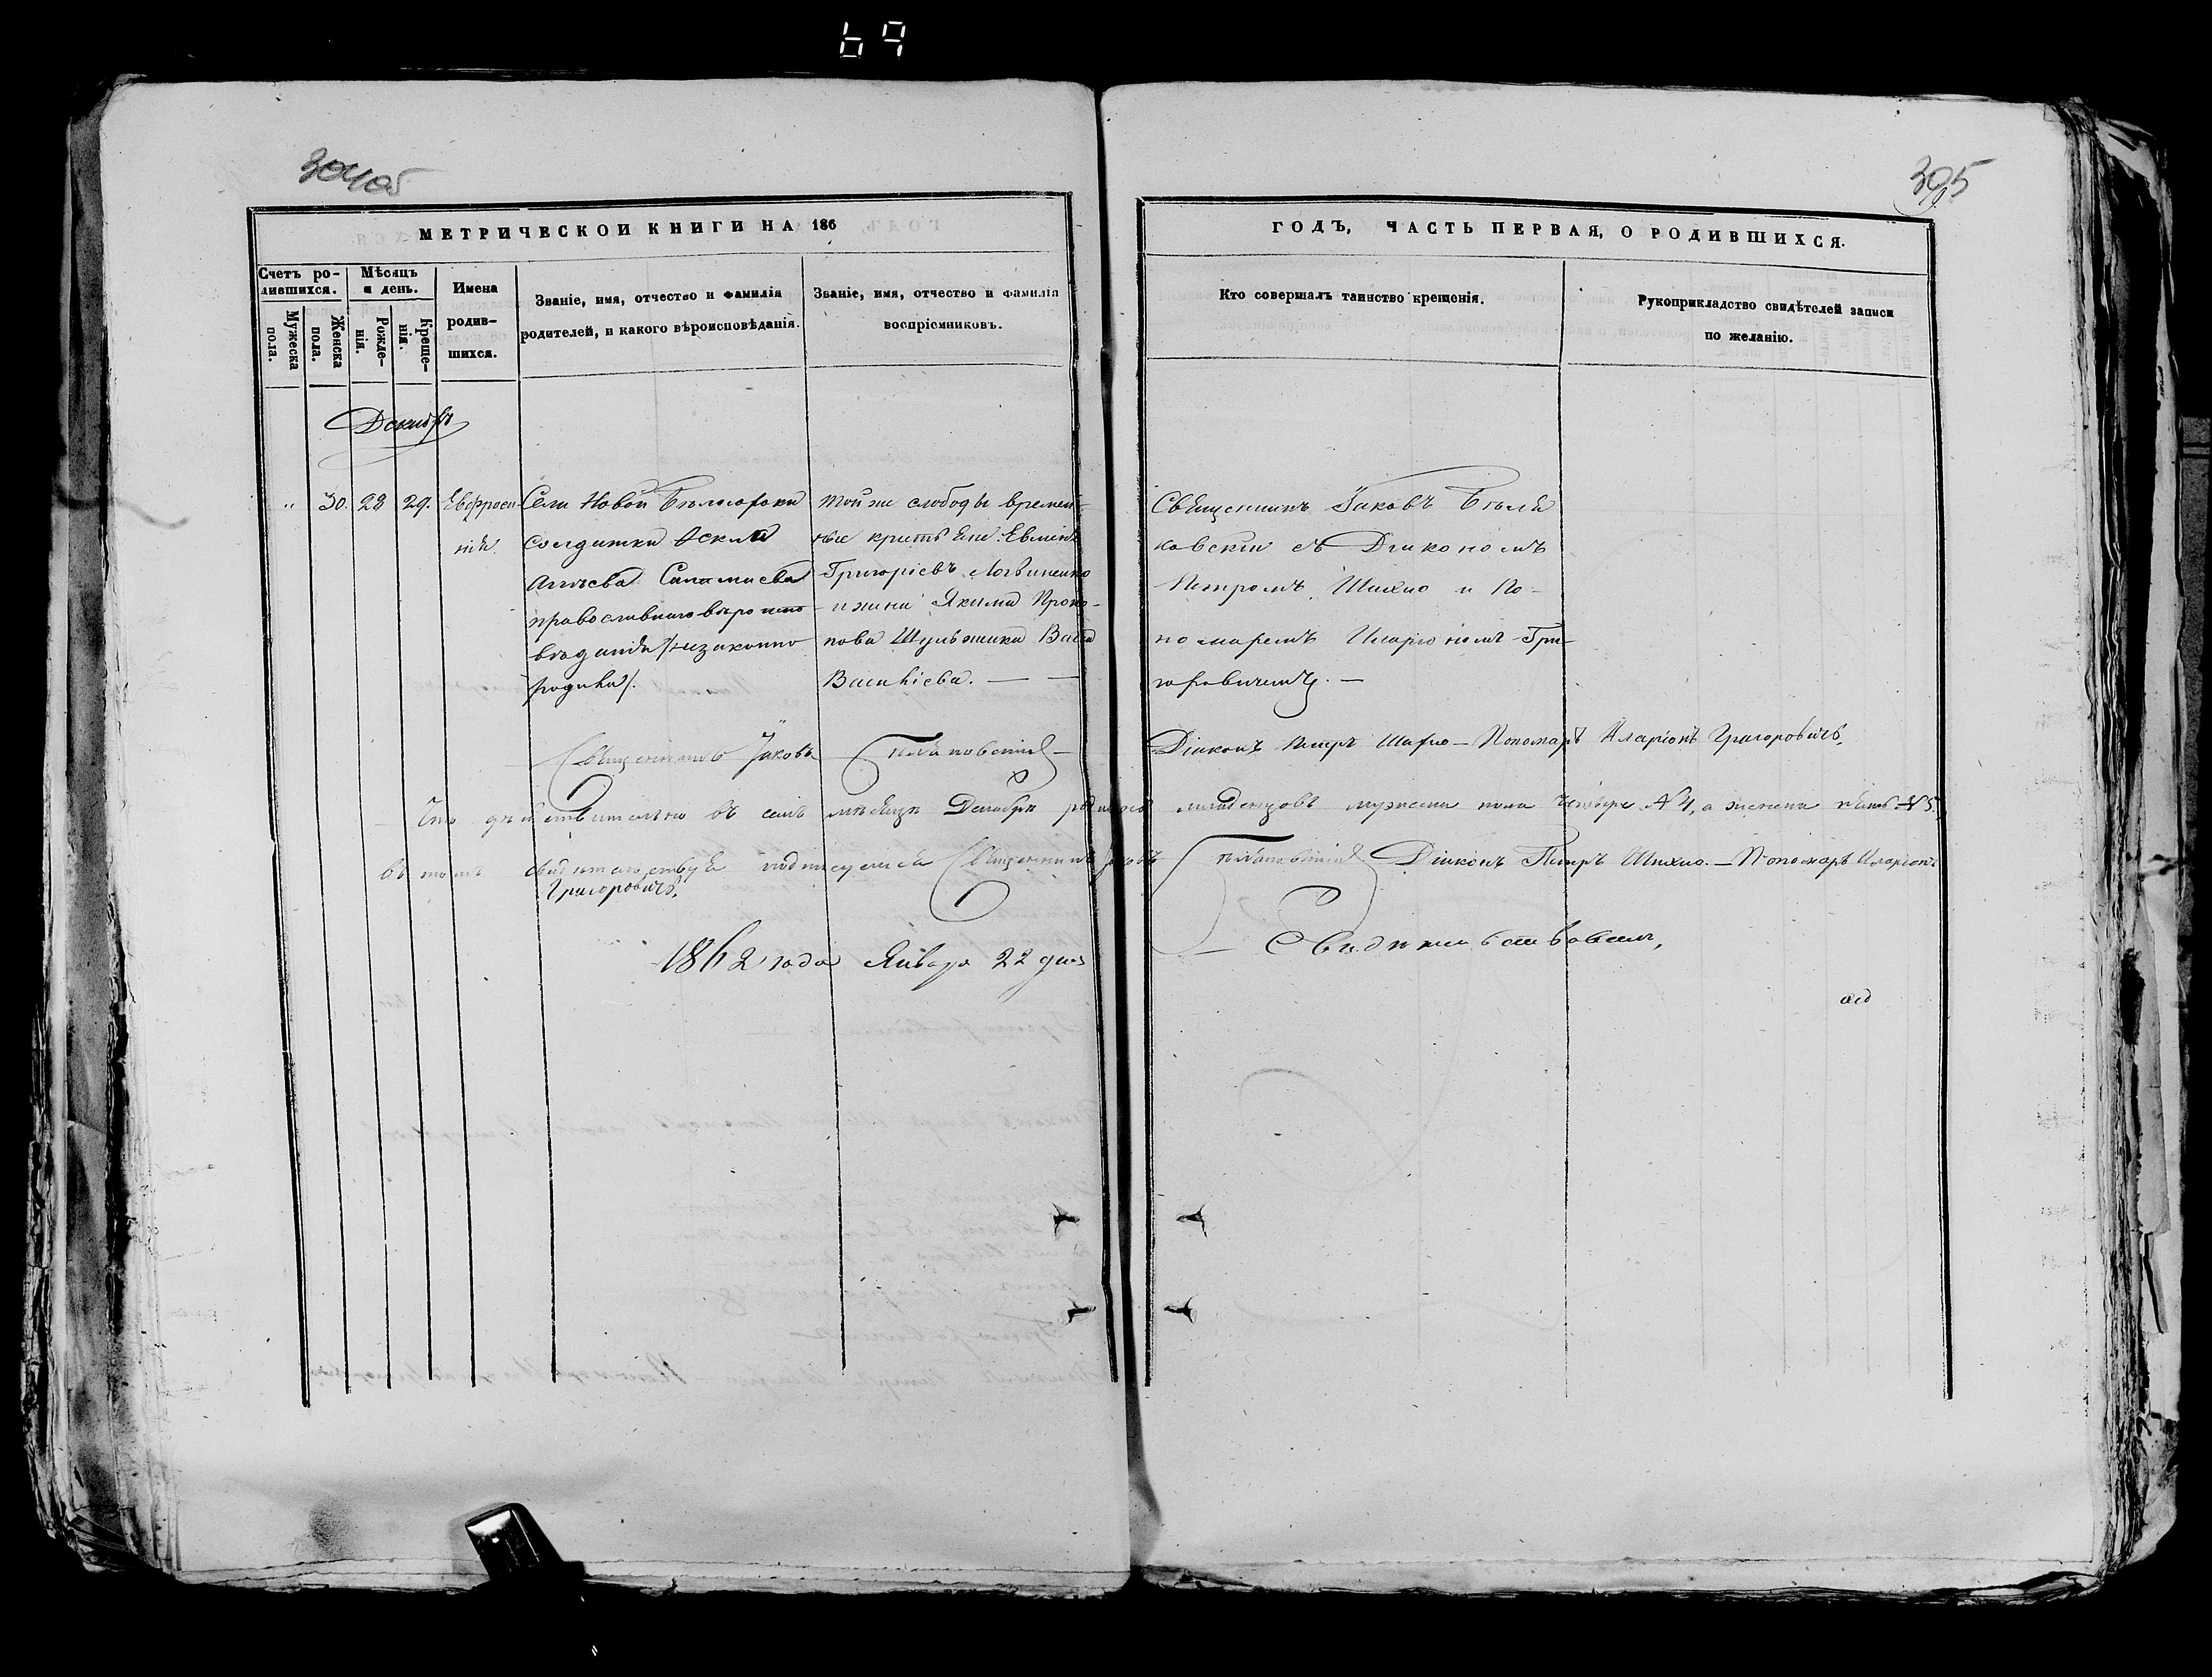 69
395
МЕТРИЧЕСКОЙ КНИГИ НА 186
ГОДЪ, ЧАСТЬ ПЕРВАЯ, О РОДИВШИХСЯ.
Счетъ ро-
дившихся.
Мужеска
пола.
Женска
пола.
Мѣсяцъ
и день.
Рожде-
нія.
Креще-
нія.
Имена
родив-
шихся.
Званіе, имя, отчество и фамилія
родителей, и какого вѣроисповѣданія.
Званіе, имя, отчество и фамилія
воспріемниковъ.
Кто совершалъ таинство крещенія.
Рукоприкладство свидѣтелей записи
по желанію.
Декабрь
" 30. 28 29. Евфросн
нія.
Села Новой
солдатки
православнаго вѣроиспо
вѣданія /незаконно
Той же слободы времен-
Григоріевъ Логвиненко
и жена Якима Проко-
пова Шульжика
Васильева.
Священникъ Іаковъ
съ Діакономъ
Петромъ Шихно и По-
номаремъ Иларіономъ Гри-
горовичемъ.
Священникъ Іаковъ
Діаконъ Петръ Шихно - Пономарь Иларіонъ Григоровичъ.
Что дѣйствительно въ семъ мѣсяцѣ Декабрѣ родилось младенцовъ мужеска пола четыре №4, а женска пять №5.
въ томъ свидѣтельствуя подписуемся Священникъ Іаковъ Діаконъ Петръ Шихно. - Пономарь Иларіонъ
Григоровичъ.
1862 года Января 22 дня Свидѣтельствовалъ,